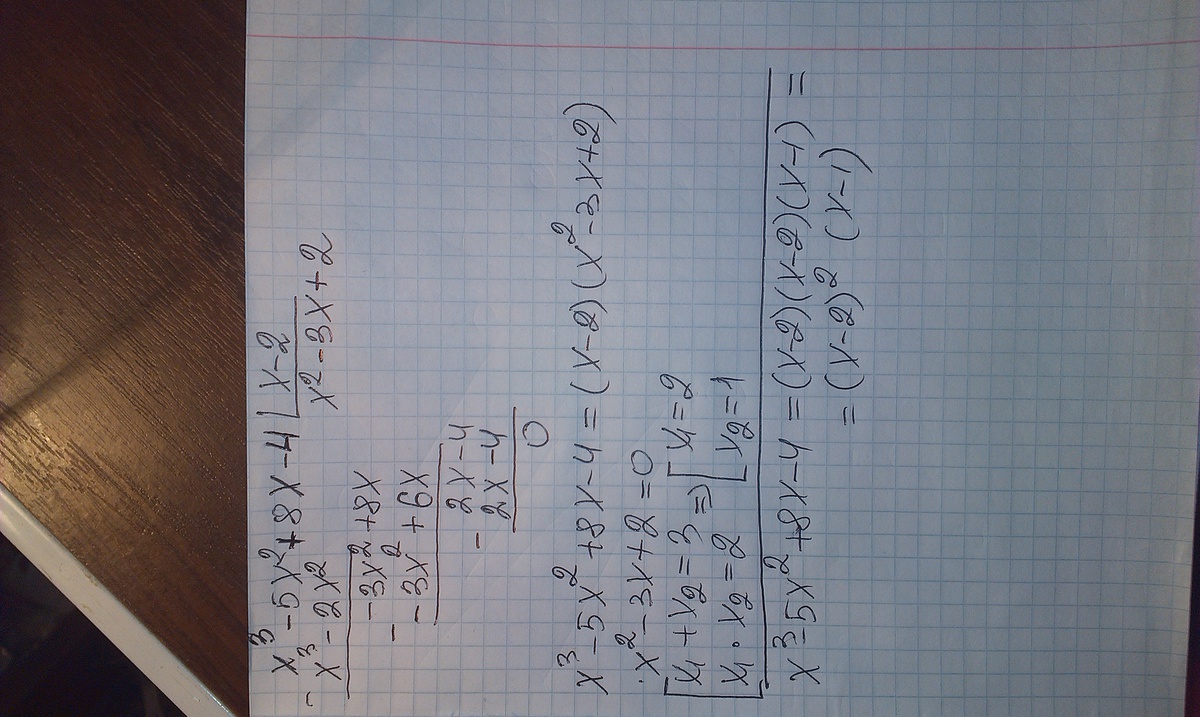 x³-5x²+8x-4 | x-2
- x³-2x² x²-3x+2
-3x²+8x
- -3x²+6x
2x-4
- 2x-4
0
x³-5x²+8x-4=(x-2)(x²-3x+2)
·x²-3x+2=0
[x₁+x₂=3 => [x₁=2
[x₁·x₂=2 [x₂=1
x³-5x²+8x-4=(x-2)(x-2)(x-1)=
=(x-2)²(x-1)